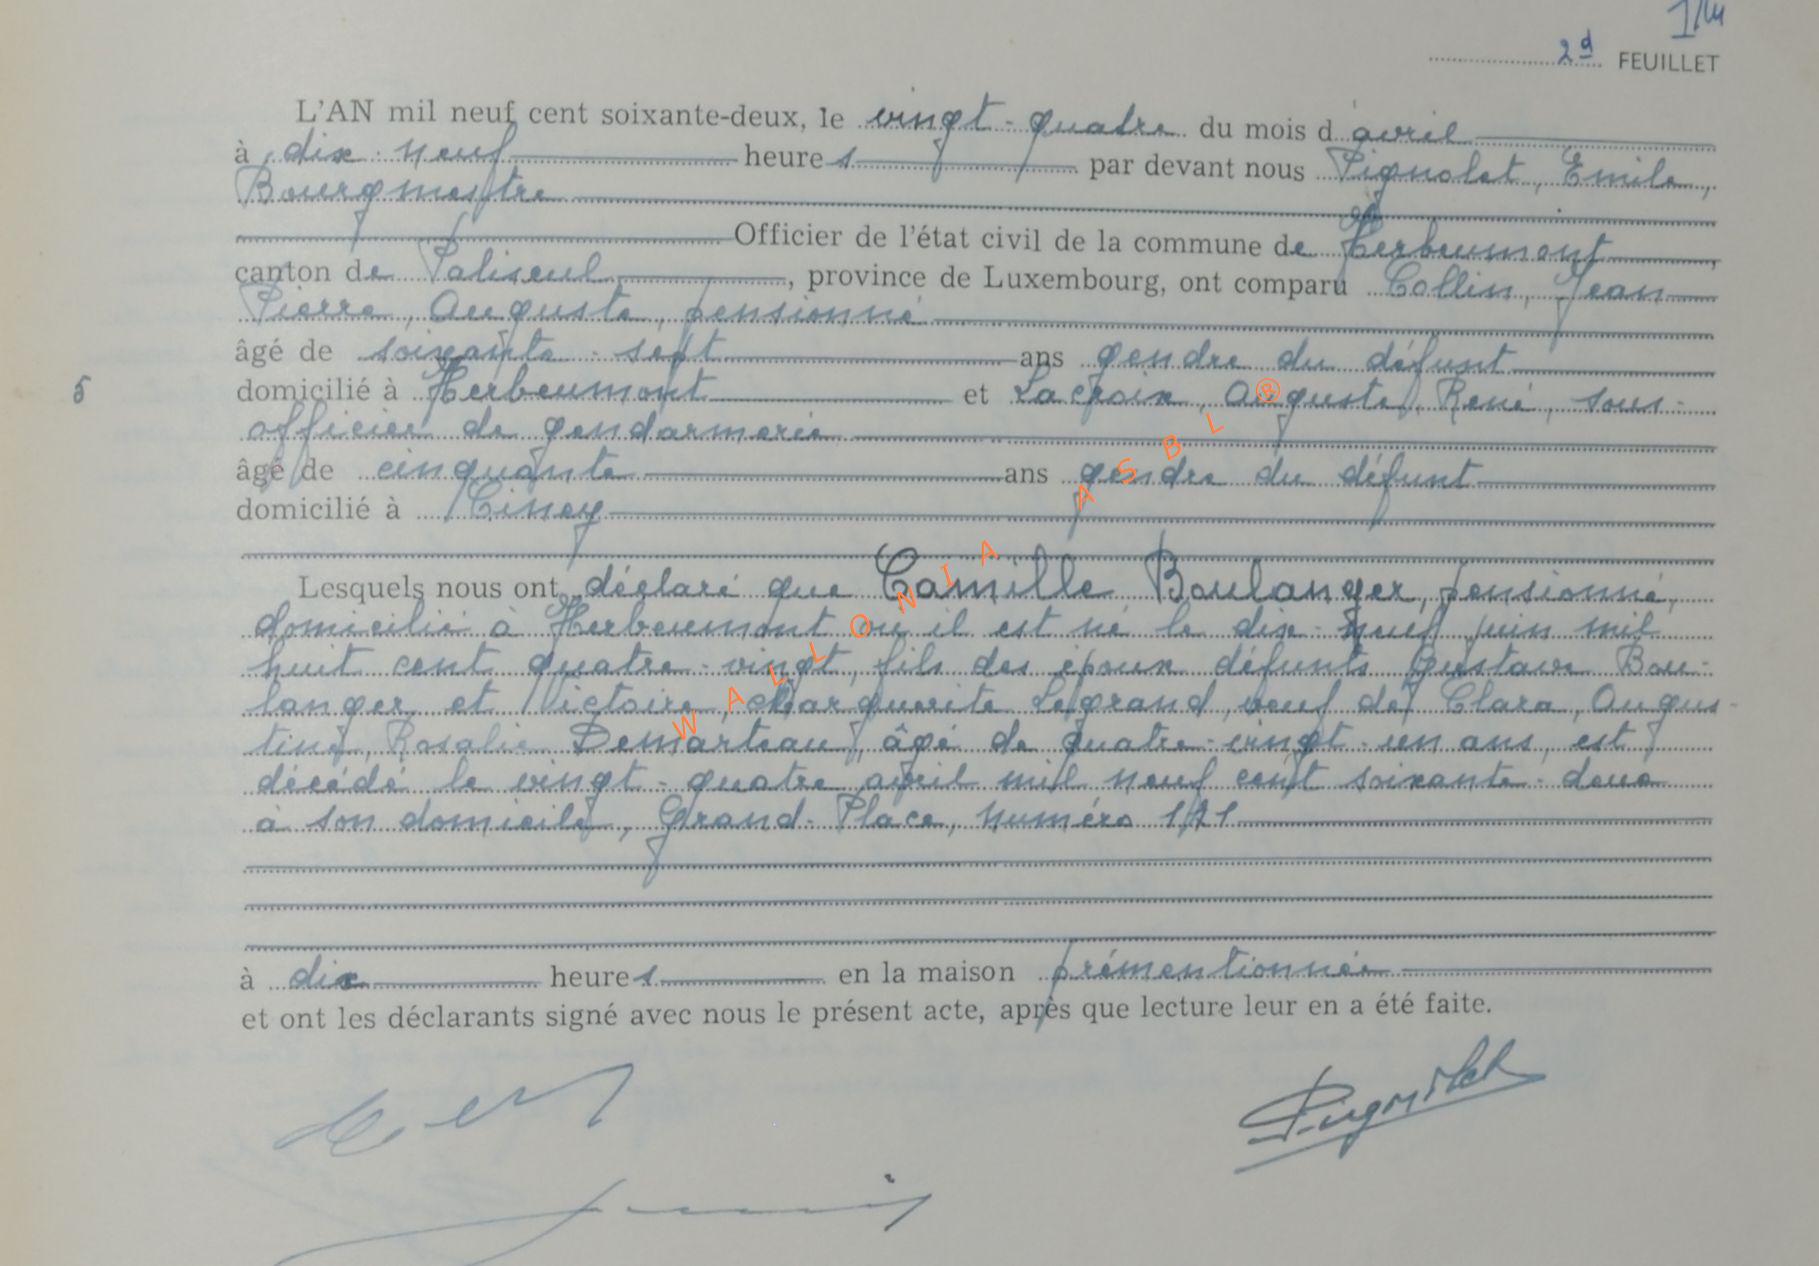 2d FEUILLET
L'AN mil neuf cent soixante-deux, le vingt-quatre du mois d'avril
à dix-neuf heures par devant nous Pignolet, Emile,
Bourgmestre
Officier de l'état civil de la commune de Herbeumont,
canton de Paliseul, province de Luxembourg, ont comparu Collin, Jean
Pierre, Auguste, pensionné
âgé de soixante-sept ans gendre du défunt
5 domicilié à Herbeumont et Lacroix, Auguste, René, sous-
officier de gendarmerie
âgé de cinquante ans gendre du défunt
domicilié à Ciney
Lesquels nous ont déclaré que Camille Boulanger, pensionné,
domicilié à Herbeumont où il est né le dix-neuf juin mil
huit cent quatre-vingt, fils des époux défunts Gustave Bou-
langer et Victoire, Marguerite Legrand, veuf de Clara, Augus-
tine, Rosalie Demarteau, âgé de quatre-vingt-un ans, est
décédé le vingt-quatre avril mil neuf cent soixante-deux
à son domicile, Grand-Place, numéro 121
à dix heures en la maison prémentionnée
et ont les déclarants signé avec nous le présent acte, après que lecture leur en a été faite.
Pignolet
WALLONIA ASBL®